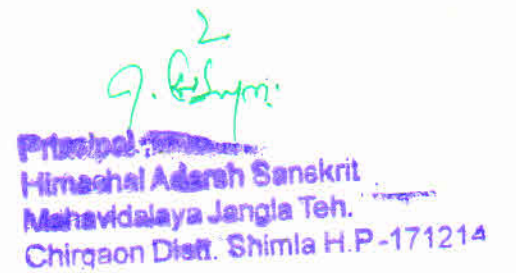 2
Principal
Himachal Adarsh Sanskrit
Mahavidalaya Jangla Teh.
Chirgaon Distt. Shimla H.P-171214